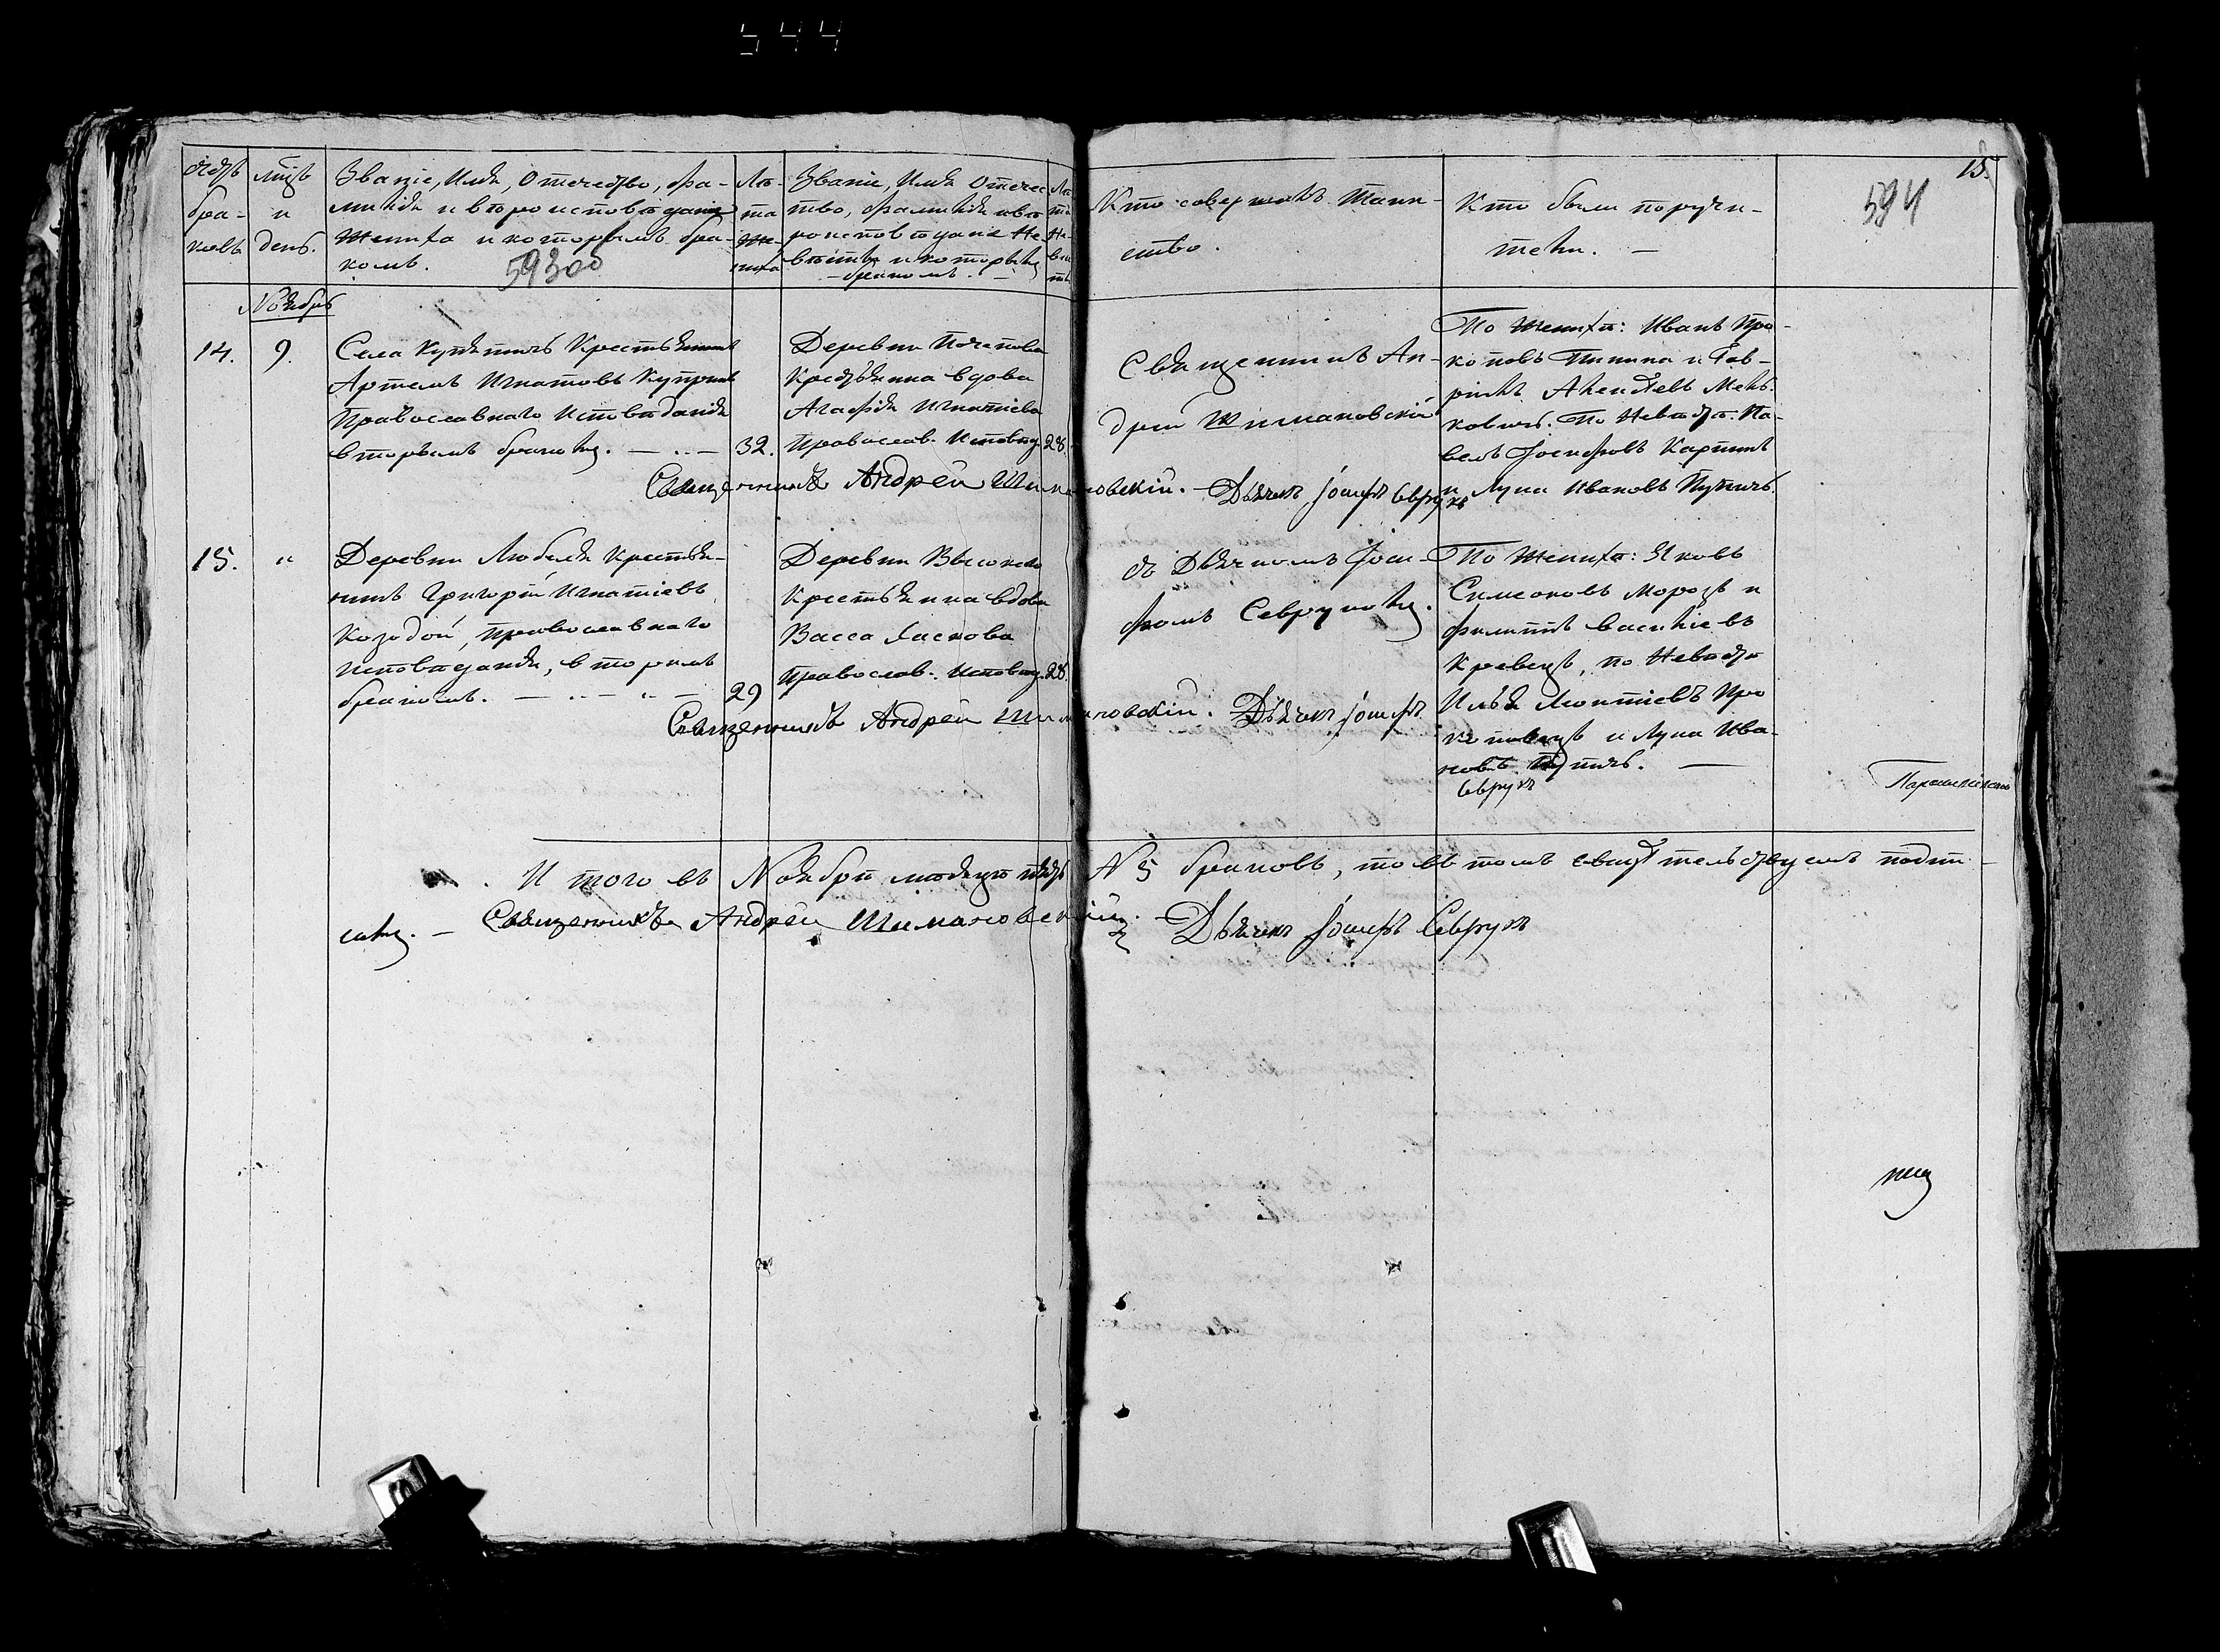 544
15.
594
Счетъ бра- ковъ
мцъ и день.
Званіе, Имя, Отечество, фа-
милія и вѣроисповѣданіе
Жениха и которымъ бра-
комъ.
59300
Лѣ- та Же- ниха
Званіе, Имя Отечес
тво, фамилія и вѣ
роисповѣданіе Не
вѣсты и которымъ
бракомъ.
Лѣ та Не вѣс ты
Кто совершалъ Таин-
ство.
Кто были поручи-
тели. —
Ноябрь
14.
9.
Села Купятичъ Крестьянинъ
Артемъ Игнатовъ Купринъ
Православнаго Исповѣданія
вторымъ бракомъ. — „ —
32.
Деревни Почапова
Крестьянка вдова
Агафія Игнатіева
Православ. Исповѣд.
28.
Священникъ Ан-
дрей Шимановскій
По Жениху: Иванъ Про-
коповъ Пинина и Гав-
рилъ Алексѣевъ Мель-
ковичъ. По Невѣстѣ: Па-
велъ Іосифовъ Карпинъ
и Лука Ивановъ Путичъ.
Священникъ Андрей Шимановскій. Дьячекъ Іосифъ Севрукъ
15.
„
Деревни Любеля Крестья-
нинъ Григорій Игнатіевъ
Козодой, Православнаго
Исповѣданія, вторымъ
бракомъ. — „ — „ —
29
Деревни Высокого
Крестьянка вдова
Васса Яскова
Православ. Исповѣд.
28.
съ Дьячкомъ Іоси-
фомъ Севрукомъ.
По Жениху: Яковъ
Симеоновъ Морозъ и
Филиппъ Василіевъ
Кревецъ, по Невѣстѣ
Илья Леонтіевъ Про
коповецъ и Лука Ива-
новъ Путичъ. —
Священникъ Андрей Шимановскій. Дьячекъ Іосифъ
Севрукъ
И того въ Ноябрѣ мѣсяцѣ пять № 5 браковъ, то въ томъ свидѣтельствуемъ подпи-
сомъ. — Священникъ Андрей Шимановскій. Дьячекъ Іосифъ Севрукъ